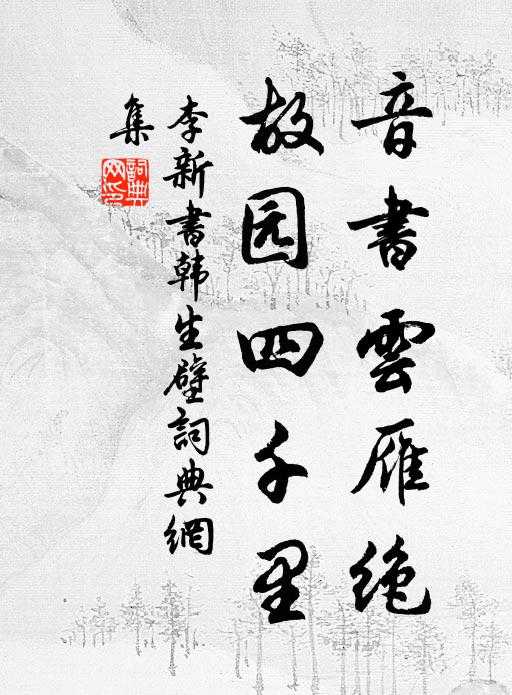 音書雲雁绝
故园四千里
李新書韩生壁詞典網
集
詞典网印